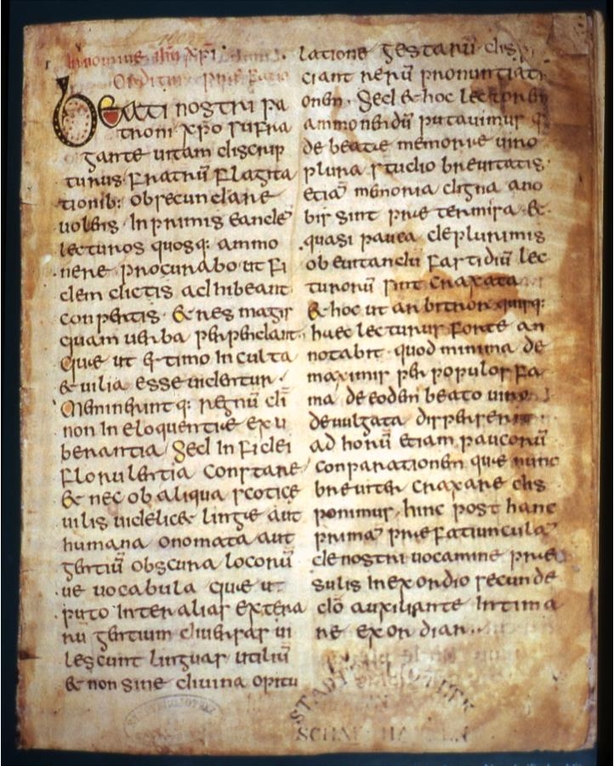 In nomine ihu xpi
Orditur prae fatio
Beati nostri pa
troni xpo suffra
gante uitam discrip
turus fratrū flagita
tionib: obsecundare
uolens In primis eandē
lecturos quosq: ammo
nere procurabo ut fi
dem dictis adhibeant
conpertis· et res magis
quam uerba perpendant,
quae ut estimo Inculta
et uilia esse uidentur·
Meminerint q: regnū dī
non In eloquentiae exu
berantia sed In fidei
florulentia constare
et nec ob aliqua scotice
uilis uidelice lingae aut
humana onomata aut
gentiū obscura locorū
ue uocabula quae ut
puto Inter alias extera
rū gentium diuersas ui
lescunt linguas utiliū
et non sine diuina opitu
latione gestarū· dispi
ciant rerū pronuntiati
onem· Sed et hoc lectorem
ammonendū putauimus q
de beate memoriae uiro
plura studio breuitatis
etiā memoria digna ano
bis sint prae termisa· et
quasi pauca de plurimis
ob euitandū fastidiū lec
turorū sint craxata
et hoc ut arbitror quisq:
haec lecturus forte an
notabit· quod minima de
maximis per populos fa
ma· de eodem beato uiro
deuulgata disperserit
ad horū etiam paucorū
conparationem quae nunc
breuiter craxare dis
ponimus· hinc post hanc
primā praefatiunculā
de nostri uocamine prae
sulis In exordio secunde
dō auxiliante Intima
re exordiar··
STADTBIBLIOTHEK
STADTBIBLIOTHEK
SCHAFFHAUSEN